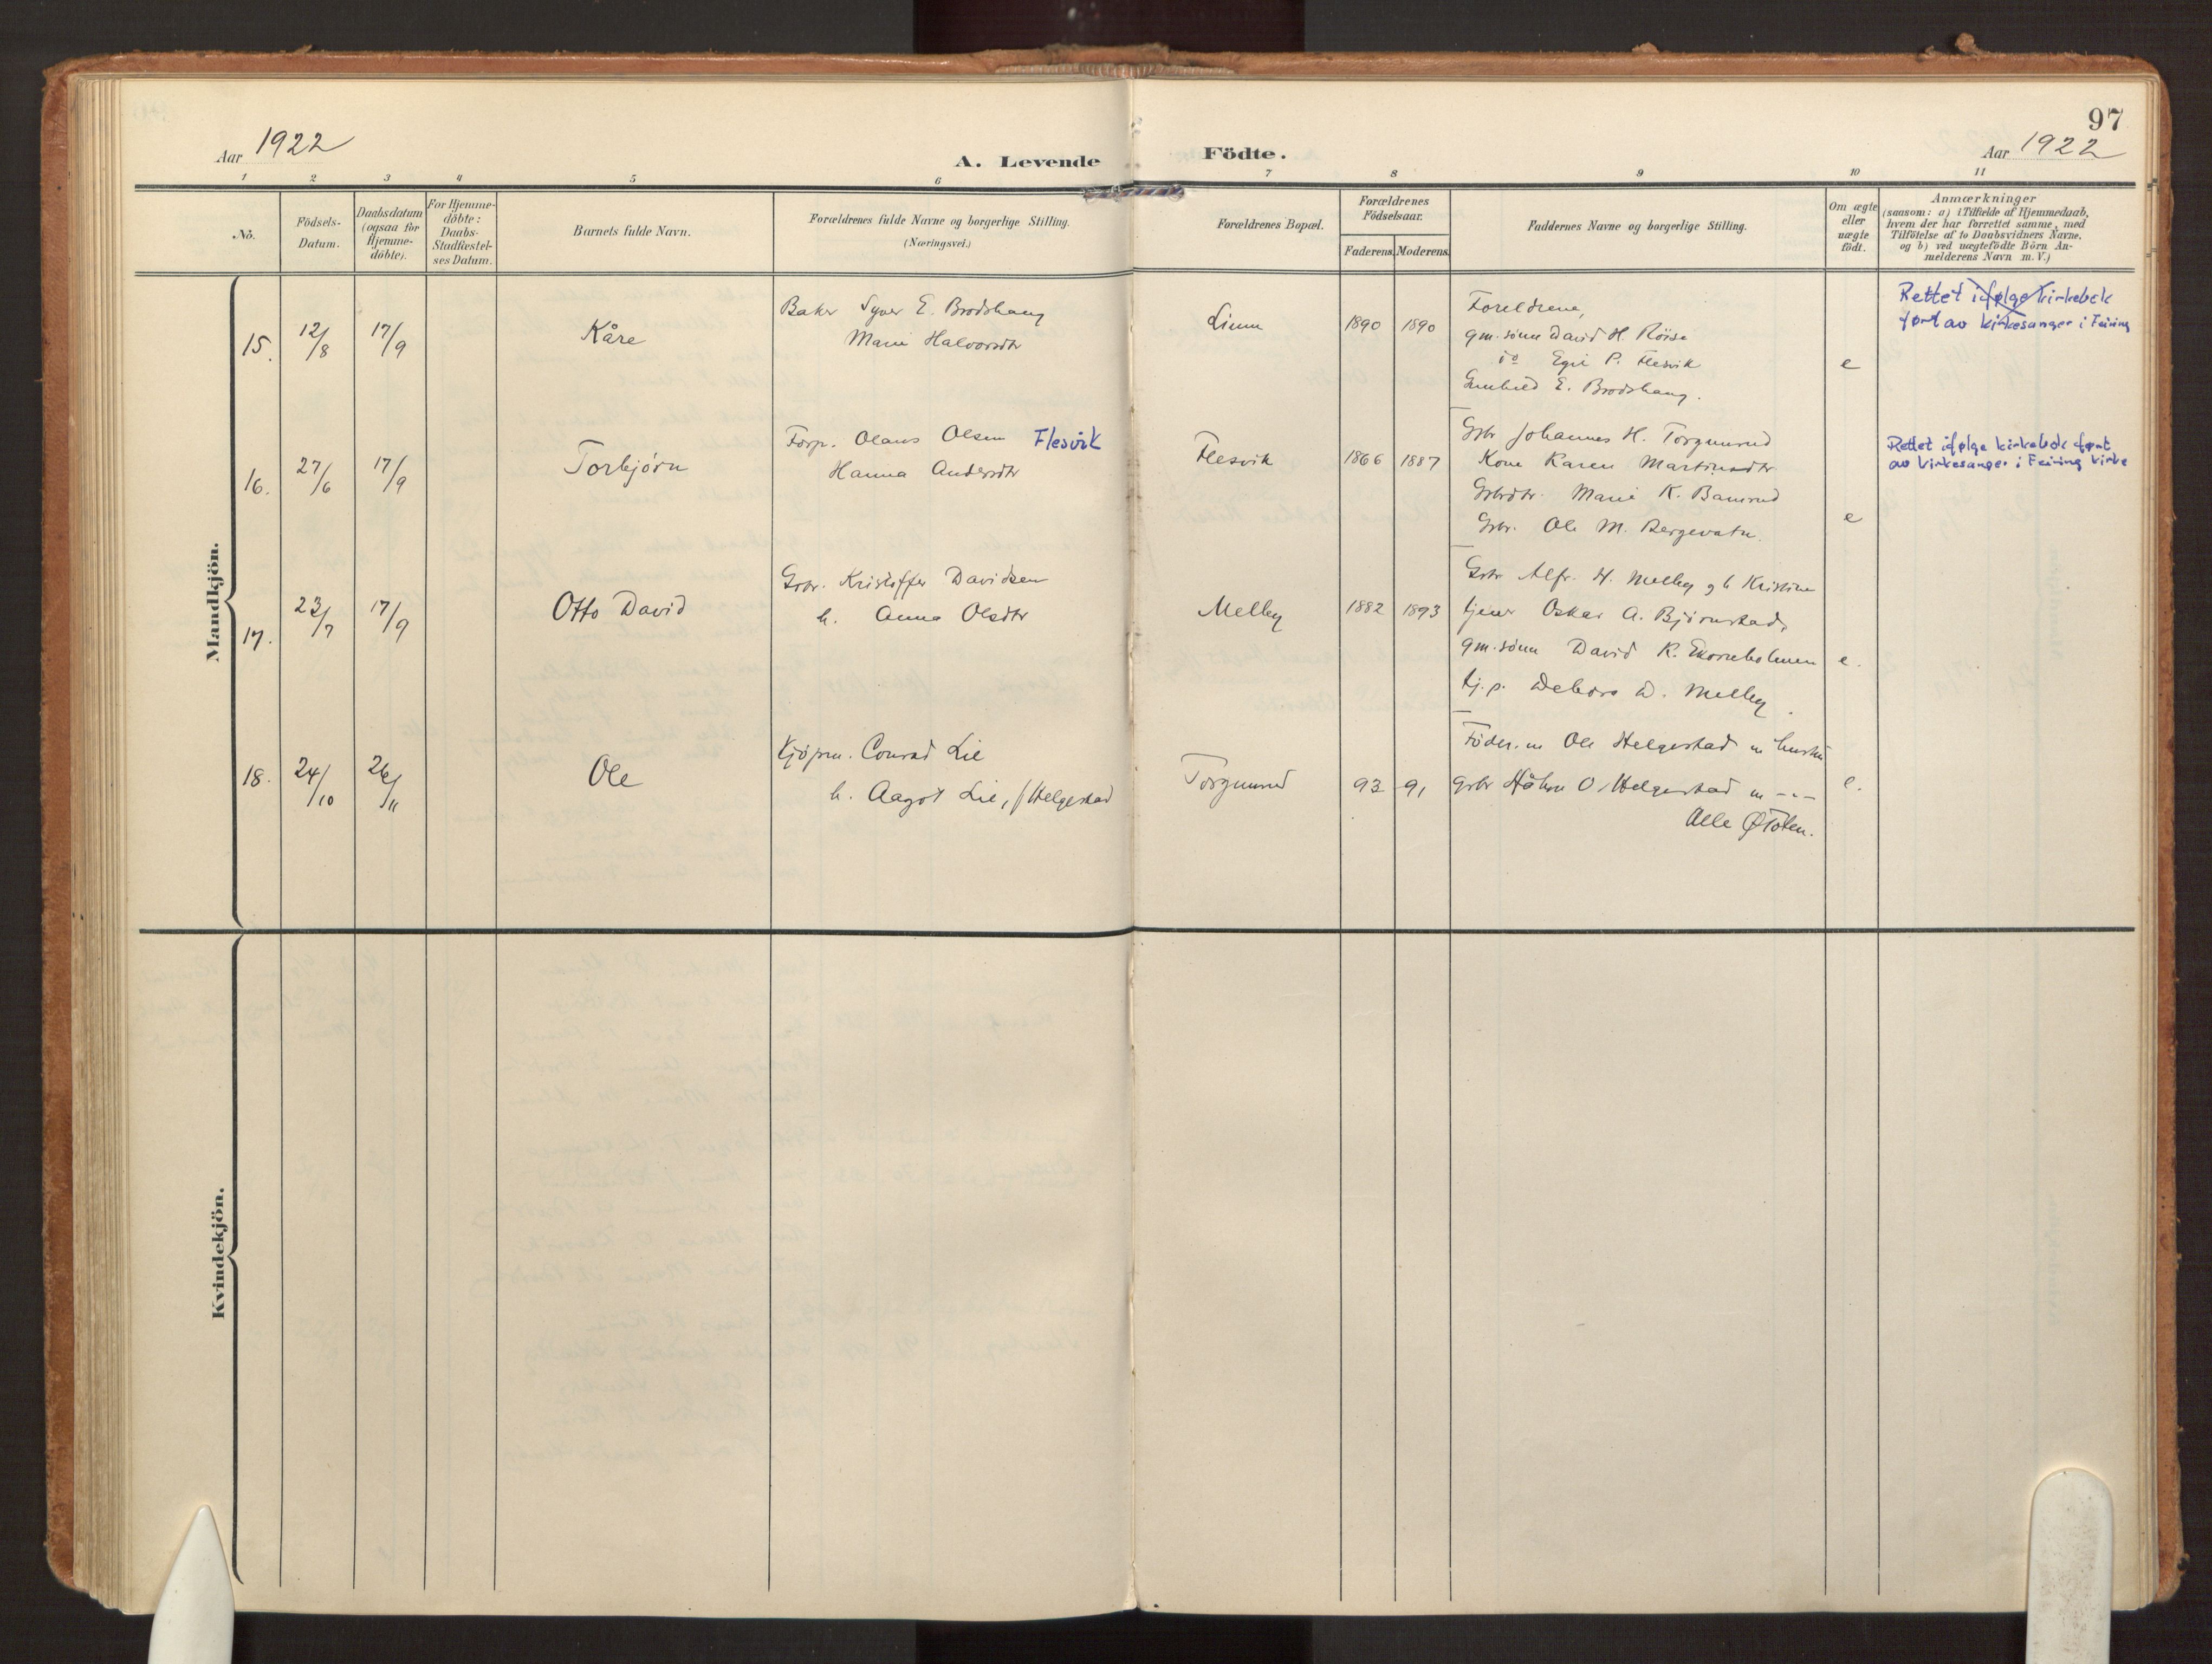 97
Aar 1922
A. Levende Födte.
Aar 1922
1 2 3 4 5 6 7 8 9 10 11
No.
Födsels-
Datum.
Daabsdatum
(ogsaa for
Hjemme-
döbte).
For Hjemme-
döbte:
Daabs-
Stadfæstel-
ses Datum.
Barnets fulde Navn.
Forældrenes fulde Navne og borgerlige Stilling.
(Næringsvei.)
Forældrenes Bopæl.
Forældrenes
Födselsaar.
Faderens. Moderens.
Faddernes Navne og borgerlige Stilling.
Om ægte
eller
uægte
födt.
Anmærkninger
(saasom: a) i Tilfælde af Hjemmedaab,
hvem der har forrettet samme, med
Tilföielse af to Daabsvidners Navne,
og b) ved uægtefödte Börn An-
melderens Navn m. V.)
Mandkjön.
15. 12/8 17/9 Kåre
Baker Syver E. Brodshaug
Marie Halvorsdtr
Linna 1890 1890
Foreldrene,
gm. sønn David H. Röise
do Egil P. Flesvik
Gunhild E. Brodshaug.
e
Rettet ifølge kirkebok
ført av kirkesanger i Feiring
16. 27/6 17/9 Torbjörn
Forp. Olaus Olsen Flesvik
Hanna Andersdtr
Flesvik 1866 1887
Gbr Johannes H. Torgunrud
Kone Karen Martinsdtr
Gbrdtr. Marie K. Bamrud
Gbr. Ole M. Bergevatn.
e
Rettet ifølge kirkebok ført
av kirkesanger i Feiring kirke
17. 23/7 17/9 Otto David
Gbr. Kristoffer Davidsen
h. Anna Olsdtr
Melby 1882 1893
Gbr Alfr. H. Melby og h Kristine
tjener Oskar A. Bjørnstad,
gm. sønn David K. Ekorneholmen
tj.p. Debora D. Melby.
e.
18. 24/10 26/11 Ole
Kjøpm. Conrad Lie
h. Aagot Lie, f Helgestad
Torgunrud 93 91
Föder.m Ole Helgestad m hustru
gbr Håkon O. Helgestad m -"-
Alle ØToten.
e.
Kvindekjön.